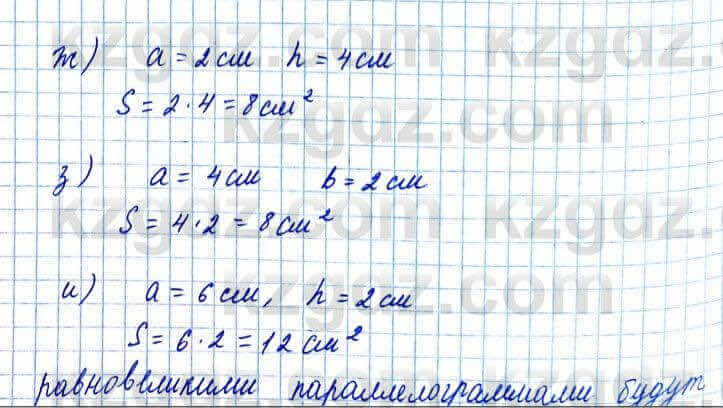 ж) a = 2 см h = 4 см
S = 2 · 4 = 8 см²
з) a = 4 см b = 2 см
S = 4 · 2 = 8 см²
и) a = 6 см, h = 2 см
S = 6 · 2 = 12 см²
равновеликими параллелограммами будут
kzgdz.com kzgdz.com
kzgdz.com
kzgdz.com kzgdz.com
kzgdz.com
kzgdz.com kzgdz.com